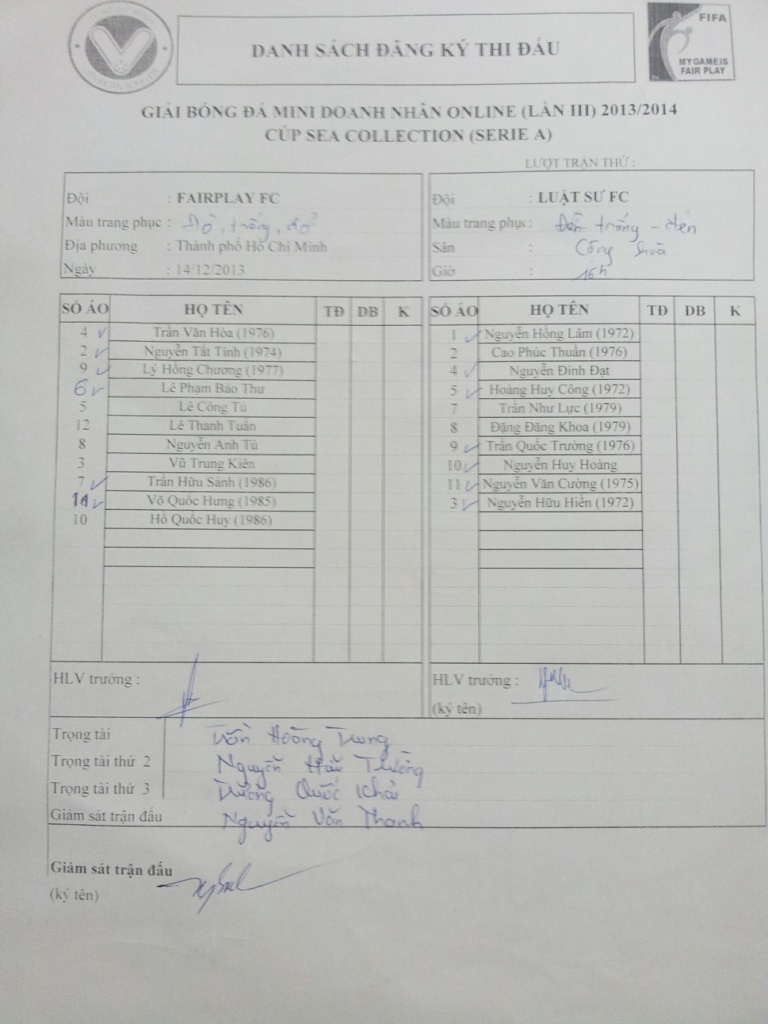 DANH SÁCH ĐĂNG KÝ THI ĐẤU
FIFA
MY GAME IS
FAIR PLAY
GIẢI BÓNG ĐÁ MINI DOANH NHÂN ONLINE (LẦN III) 2013/2014
CÚP SEA COLLECTION (SERIE A)
LƯỢT TRẬN THỨ :
Đội : FAIRPLAY FC
Màu trang phục : Đỏ, trắng, đỏ
Địa phương : Thành phố Hồ Chí Minh
Ngày : 14/12/2013
Đội : LUẬT SƯ FC
Màu trang phục : trắng - đen
Sân : Cộng hoà
Giờ : 16h
SỐ ÁO HỌ TÊN TĐ DB K
4 Trần Văn Hòa (1976)
2 Nguyễn Tất Tính (1974)
9 Lý Hồng Chương (1977)
6 Lê Phạm Bảo Thư
5 Lê Công Tú
12 Lê Thanh Tuấn
8 Nguyễn Anh Tú
3 Vũ Trung Kiên
7 Trần Hữu Sánh (1986)
Võ Quốc Hưng (1985)
10 Hồ Quốc Huy (1986)
SỐ ÁO HỌ TÊN TĐ DB K
1 Nguyễn Hồng Lâm (1972)
2 Cao Phúc Thuần (1976)
4 Nguyễn Đình Đạt
5 Hoàng Huy Công (1972)
7 Trần Như Lực (1979)
8 Đặng Đăng Khoa (1979)
9 Trần Quốc Trường (1976)
10 Nguyễn Huy Hoàng
11 Nguyễn Văn Cường (1975)
3 Nguyễn Hữu Hiền (1972)
HLV trưởng :
HLV trưởng :
(ký tên)
Trọng tài Trần Hoàng Trung
Trọng tài thứ 2 Nguyễn Hữu Trường
Trọng tài thứ 3 Trương Quốc Khải
Giám sát trận đấu Nguyễn Văn Thanh
Giám sát trận đấu
(ký tên)